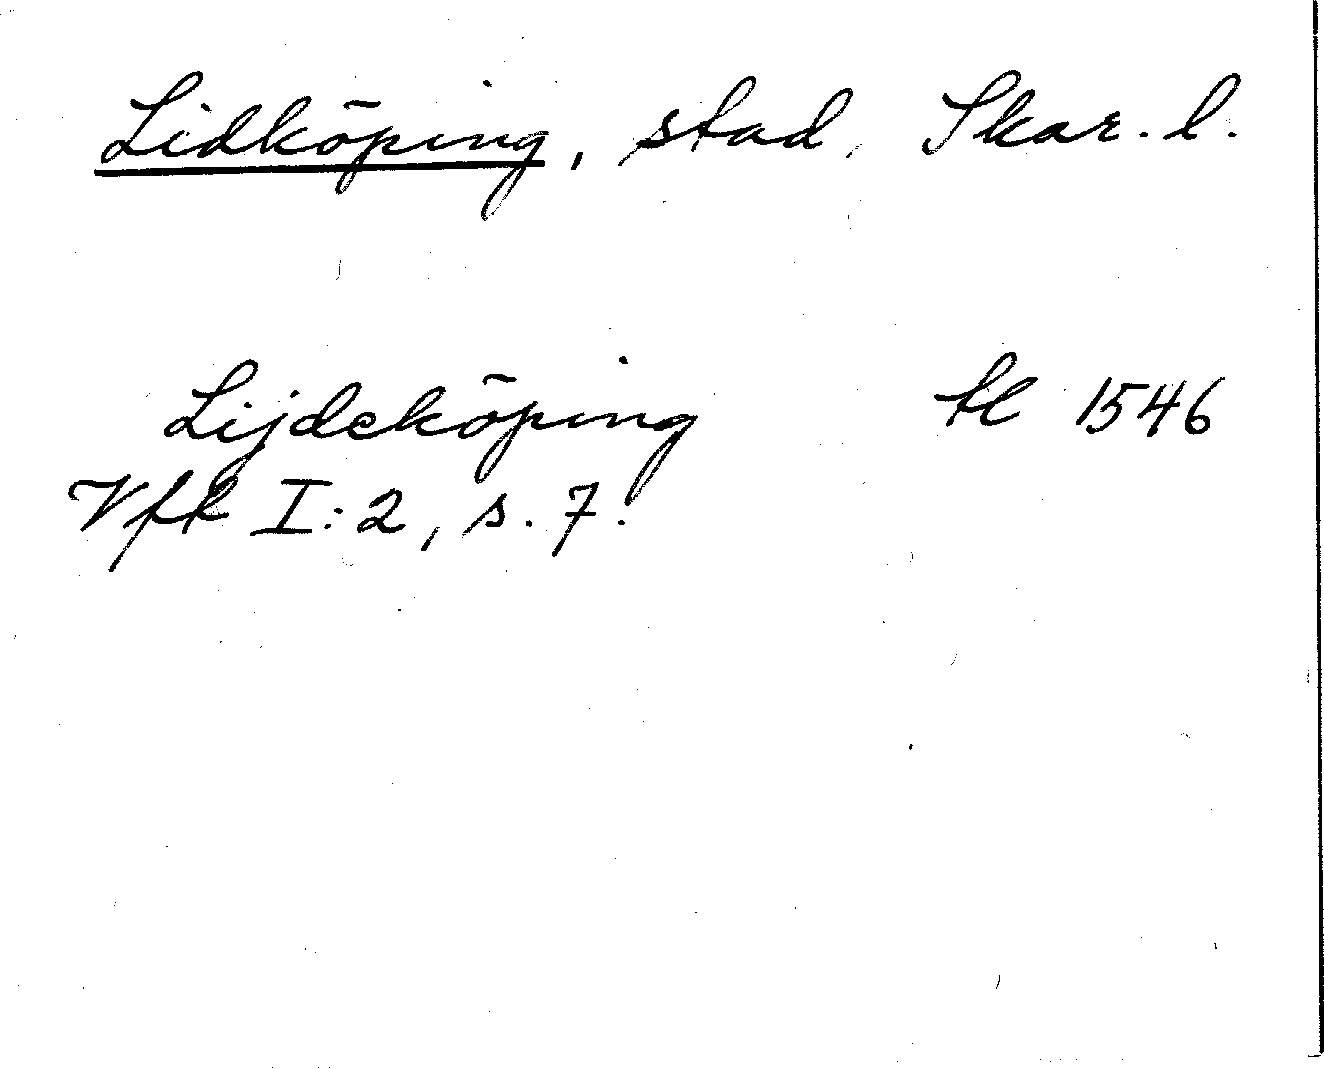 Lidköping, stad, Skar. l.
Lijdeköping tl 1546
Vfk I:2, s. 7.